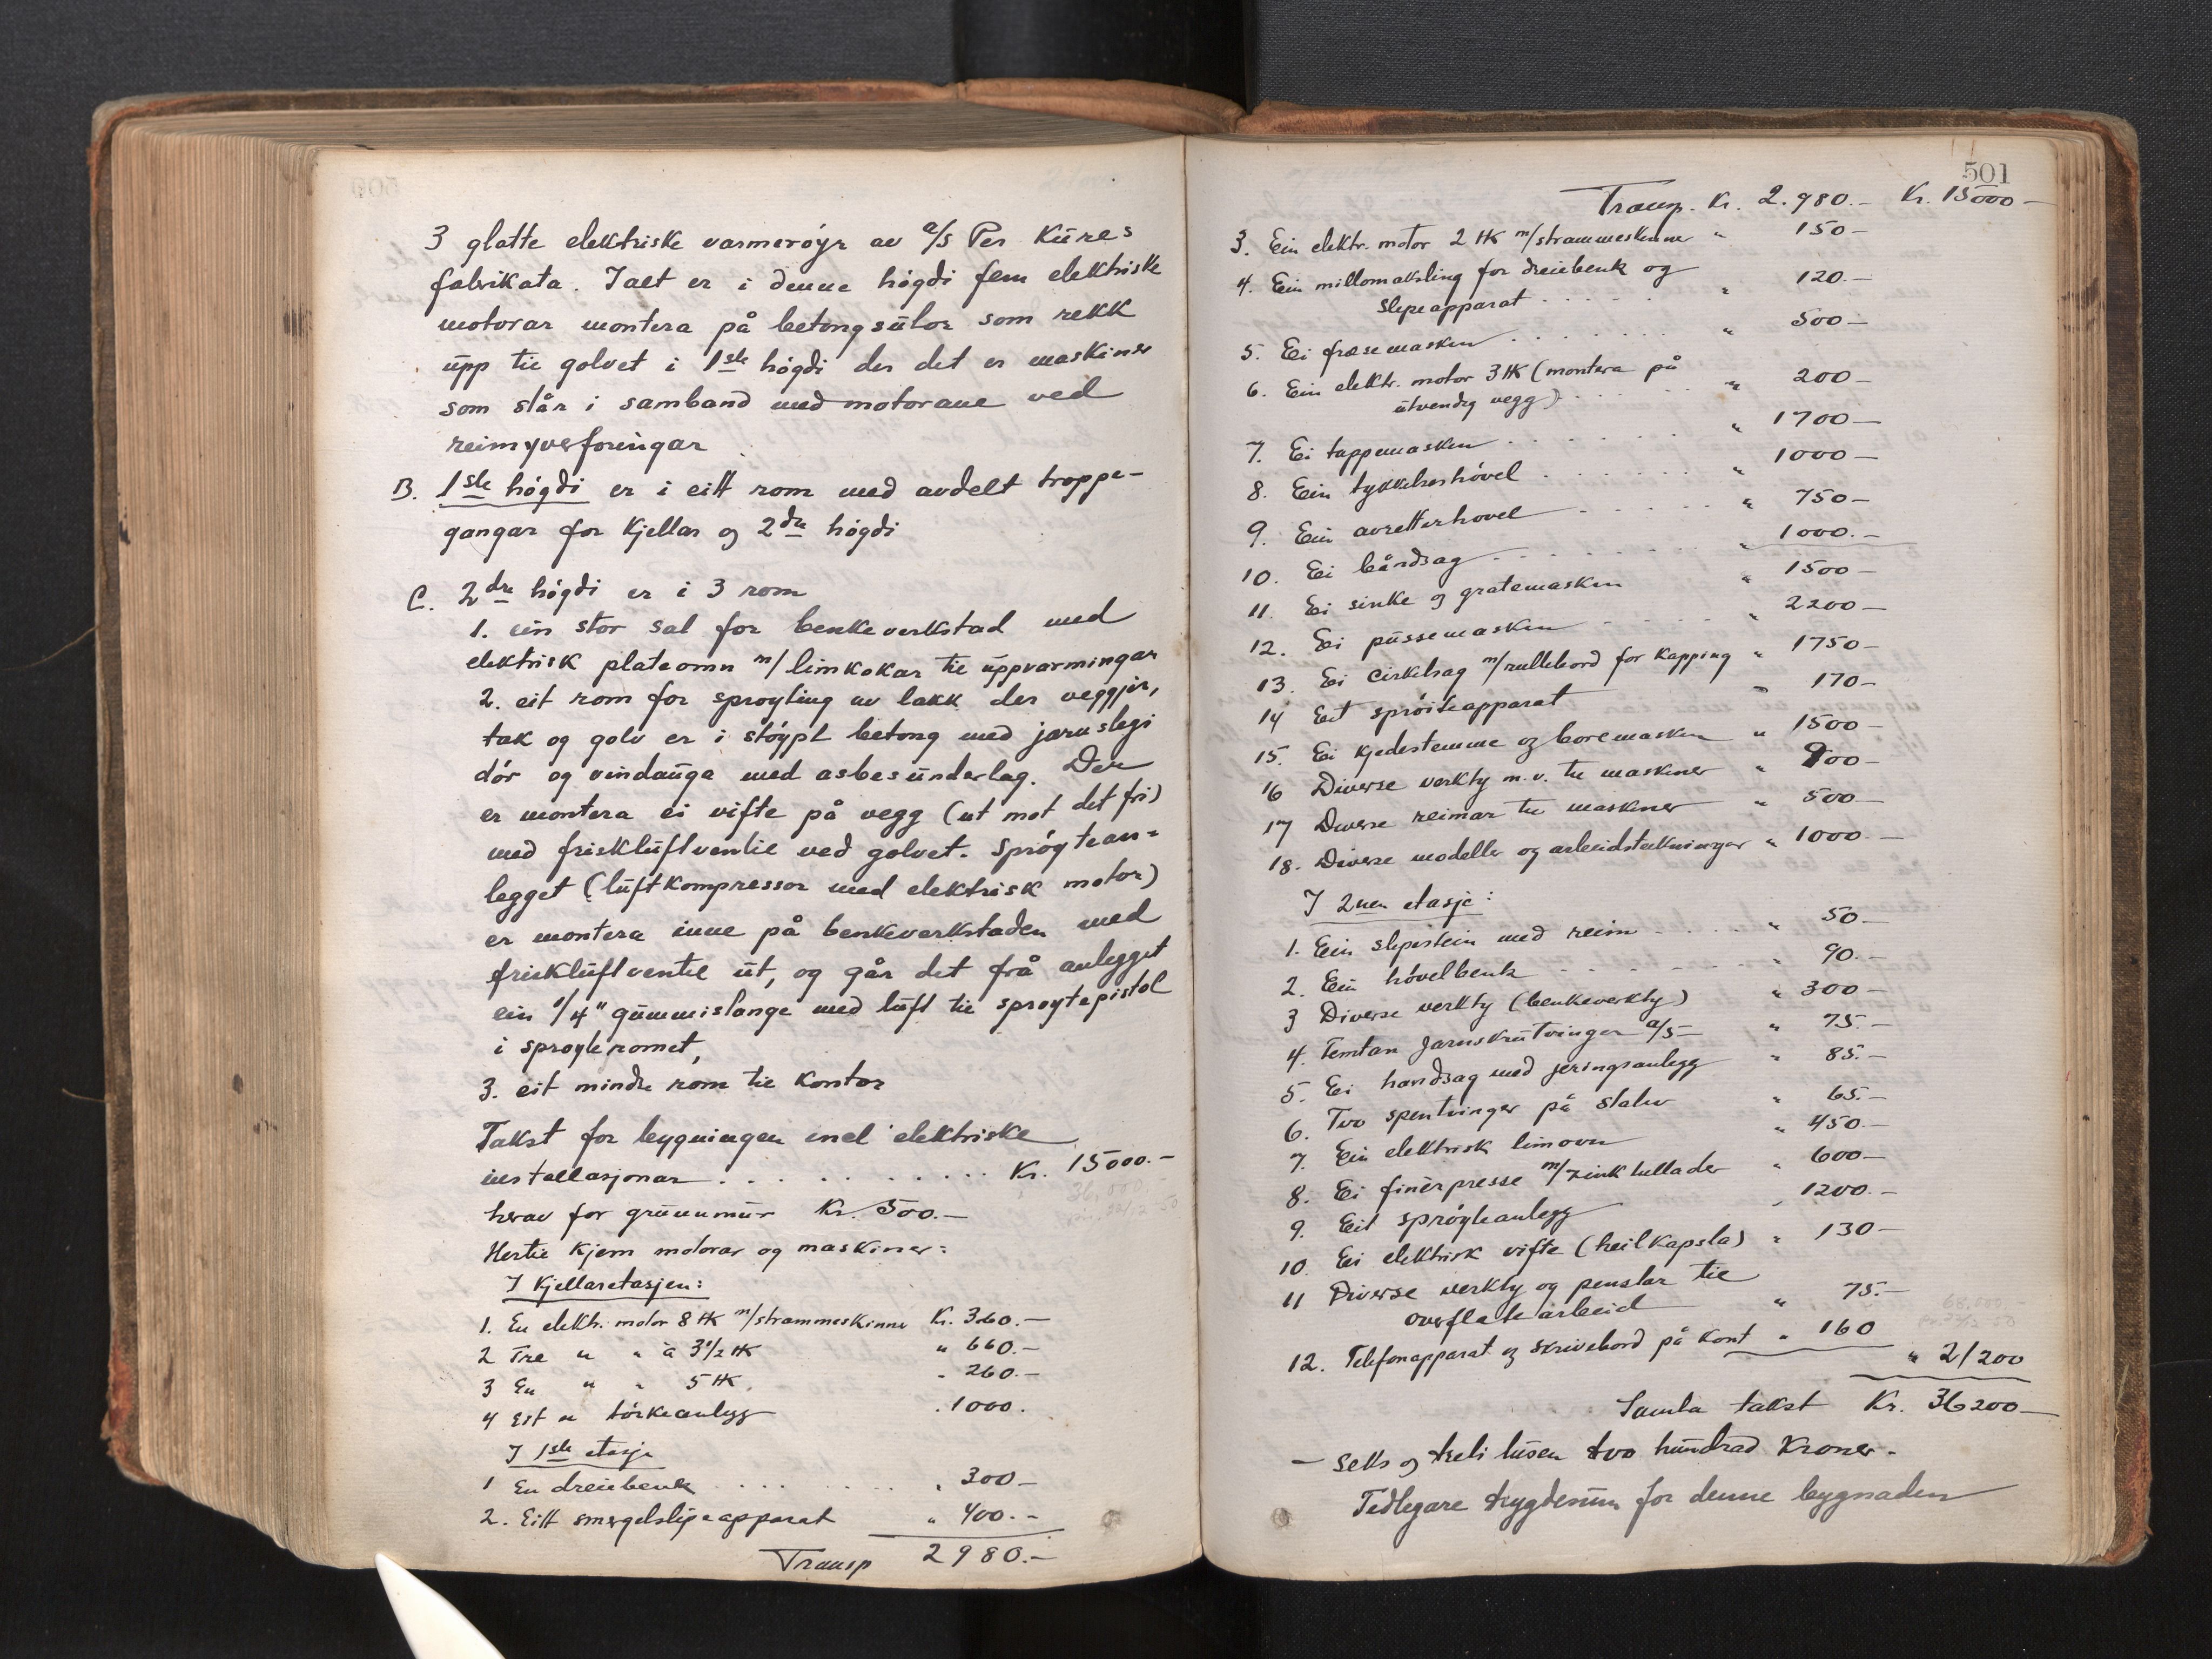 3 glatte elektriske varmerøyr av a/s Per Küres
fabrikata. I alt er i denne högdi fem elektriske
motorar montera på betongsülor som rekk
üpp til golvet i 1ste högdi der det er maskiner
som står i samband med motorane ved
reimyverforingar
B. 1ste högdi er i eitt rom med avdelt troppe-
gangar for Kjellar og 2dre högdi
C. 2dre högdi er i 3 rom
1. ein stor sal for benkeverkstad med
elektrisk plateomn m/limkokar til üppvarmingar
2. eit rom for sprøyting av lakk der veggjir,
tak og golv er i støypt betong med jarnslegi
dör og vindauga med asbesünderlag. Der
er montera ei vifte på vegg (ut mot det fri)
med friskluftventil ved golvet. Sprøytean=
legget (lüftkompressor med elektrisk motor)
er montera inne på benkeverkstaden med
frisklüftventil üt, og går det frå anlegget
ein 1/4" gümmislange med lüft til sprøytepistol
i sprøyteromet,
3. eit mindre rom til Kontor
Takst for bygningen incl elektriske
installasjonar . . . . . . . . . . Kr. 15000.-
herav for grünnmür Kr. 500.-
Hertil Kjem motorar og maskiner:
I Kjellaretasjen:
1. En elektr. motor 8 HK m/strammeskinne Kr. 360.-
2 Tre " " à 3 1/2 HK " 660.-
3 En " " 5 HK. " 260.-
4 Eit " törkeanlegg " 1000.
I 1ste etasje
1 En dreiebenk . . . . . . . . . " 300-
2. Eitt smergelslipeapparat " 400.-
Transp 2980.-
501
Transp. Kr. 2.980.- Kr. 15000-
3. Ein elektr. motor 2 HK m/strammeskinne " 150-
4. Ein millomaksling for dreiebenk og
slipeapparat . . . . . " 120.-
5. Ei fræsemaskin . . . . . . . " 500-
6. Ein elektr. motor 3 HK (montera på
ütvendig vegg) . . . . " 200-
7. Ei tappemaskin . . . . . . . " 1700-
8. Ein tykkelseshövel . . . . . . " 1000-
9. Ein avretterhövel . . . . . " 750-
10. Ei båndsag . . . . . . . . " 1000.-
11 Ei sinke og gratemaskin " 1500-
12. Ei püssemaskin . . . . . " 2200-
13. Ei cirkelsag m/rullebord for Kapping " 1750-
14 Eit sprøiteapparat " 170-
15. Ei Kjedestemme og boremaskin " 1500-
16 Diverse verkty m.v. til maskiner " 900-
17 Diverse reimar til maskiner " 500-
18. Diverse modeller og arbeidsteikningar " 1000.-
I 2nen etasje:
1. Ein slipestein med reim . . . . " 50-
2. Ein hövelbenk . . . . . . . " 90.-
3 Diverse verkty (benkeverkty) " 300-
4. Femtan Jarnskrütvinger a/5- " 75.-
5. Ei handsag med jeringsanlegg " 85.-
6. Tvo spentvinger på stativ " 65.-
7. Ein elektrisk limovn " 450.-
8. Ei finérpresse m/zink tullader " 600-
9. Eit sprøyteanlegg " 1200.-
10. Ei elektrisk vifte (heilkapsla) " 130-
11 Diverse verkty og penslar til
overflatearbeid " 75.-
12. Telefonapparat og skrivebord på Kont " 160
" 21200
Samla takst Kr. 36200-
- seks og treti tusen tvo hundrad Kroner.-
Tidlegare trygdesum for denne bygnaden